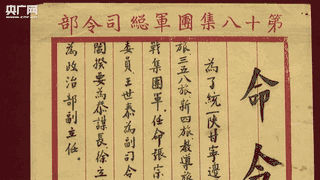 央广网
第十八集團軍總司令部
命令
為了統一陝甘寧邊
旅三五八旅新四旅教導旅
戰集團軍。任命張宗
委員王世泰為副司令
閻揆要為參謀長徐立
為政治部副主任。